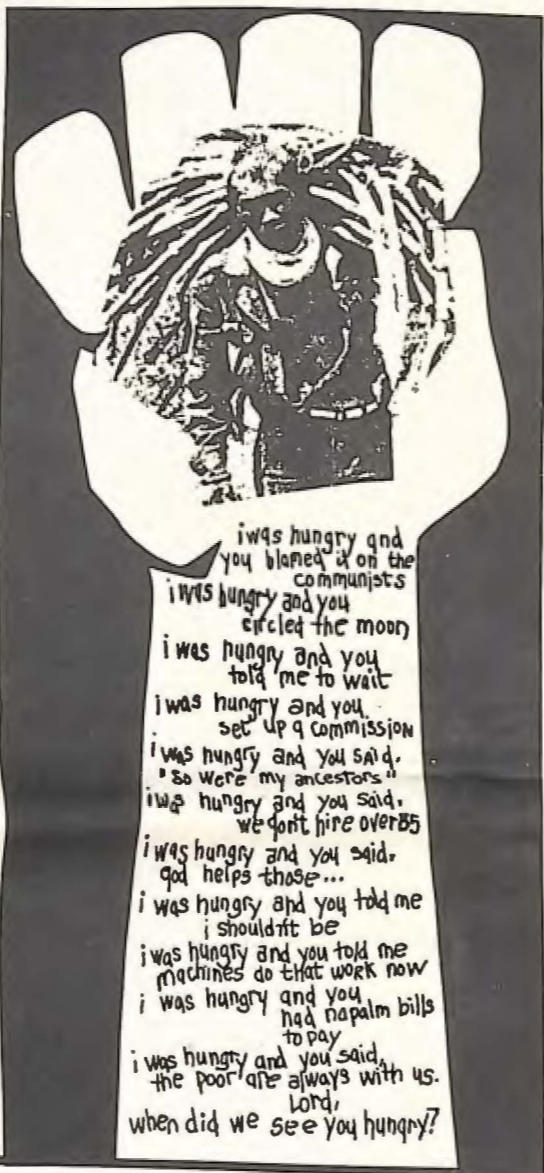 i was hungry and
you blamed it on the
communists
i was hungry and you
circled the moon
i was hungry and you
told me to wait
i was hungry and you
set up a commission
i was hungry and you said,
"so were my ancestors"
i was hungry and you said,
we don't hire over 35
i was hungry and you said,
god helps those...
i was hungry and you told me
i shouldn't be
i was hungry and you told me
machines do that work now
i was hungry and you
had napalm bills
to pay
i was hungry and you said,
the poor are always with us.
Lord,
when did we see you hungry?